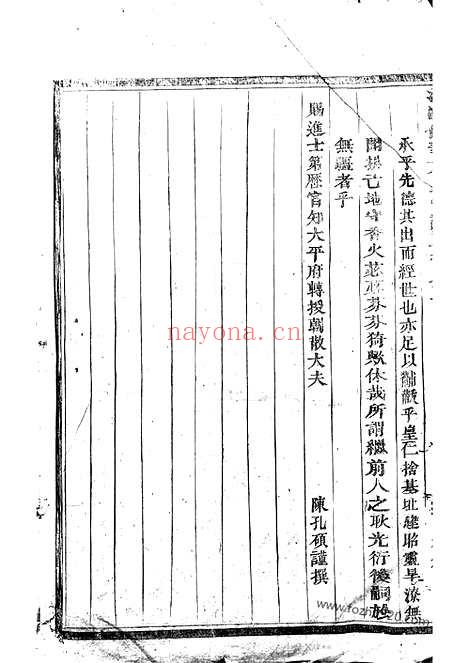 承乎先德其出而經世也亦足以黼黻乎皇仁捨基址建昭靈旱潦無
開拱亡地守香火苾苾芬芬猗歟休哉所謂繼前人之耿光衍後嗣於
無疆者乎
賜進士第歷官知太平府轉授朝散大夫 陳孔碩謹撰
nayona.cn